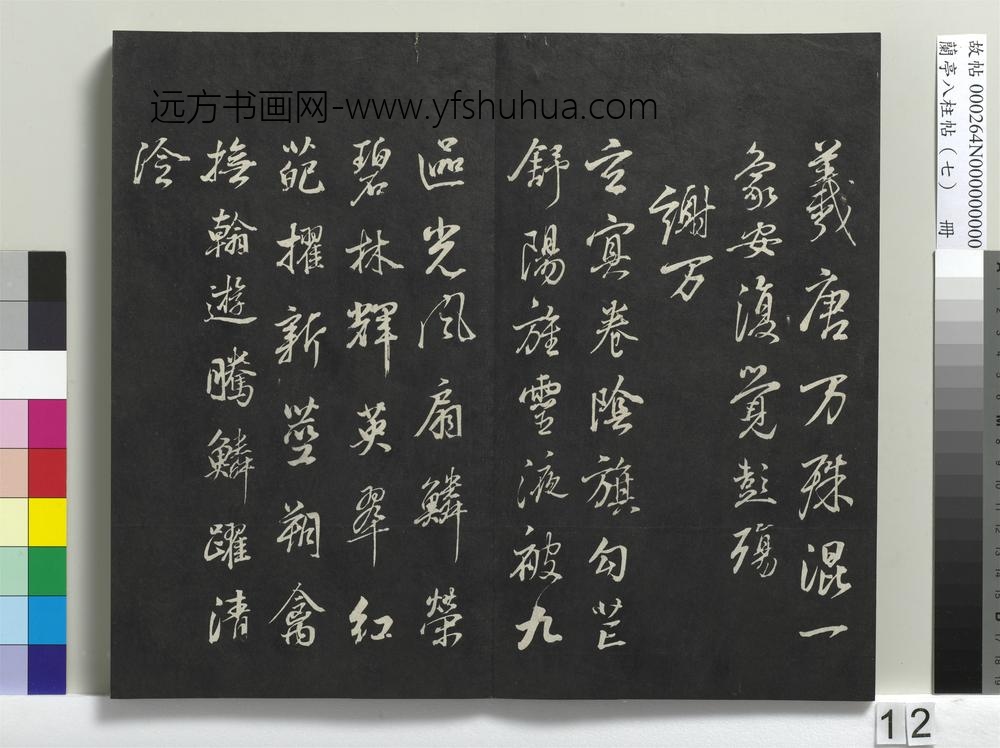 远方书画网-www.yfshuhua.com
羲唐万殊混一
象安復覺彭殤
謝万
玄冥卷陰旗勾芒
舒陽旌靈液被九
區光風扇鱗榮
碧林輝英翠紅
葩擢新莖翔禽
撫翰遊騰鱗躍清
泠
故帖 000264N000000000
蘭亭八柱帖(七) 冊
12